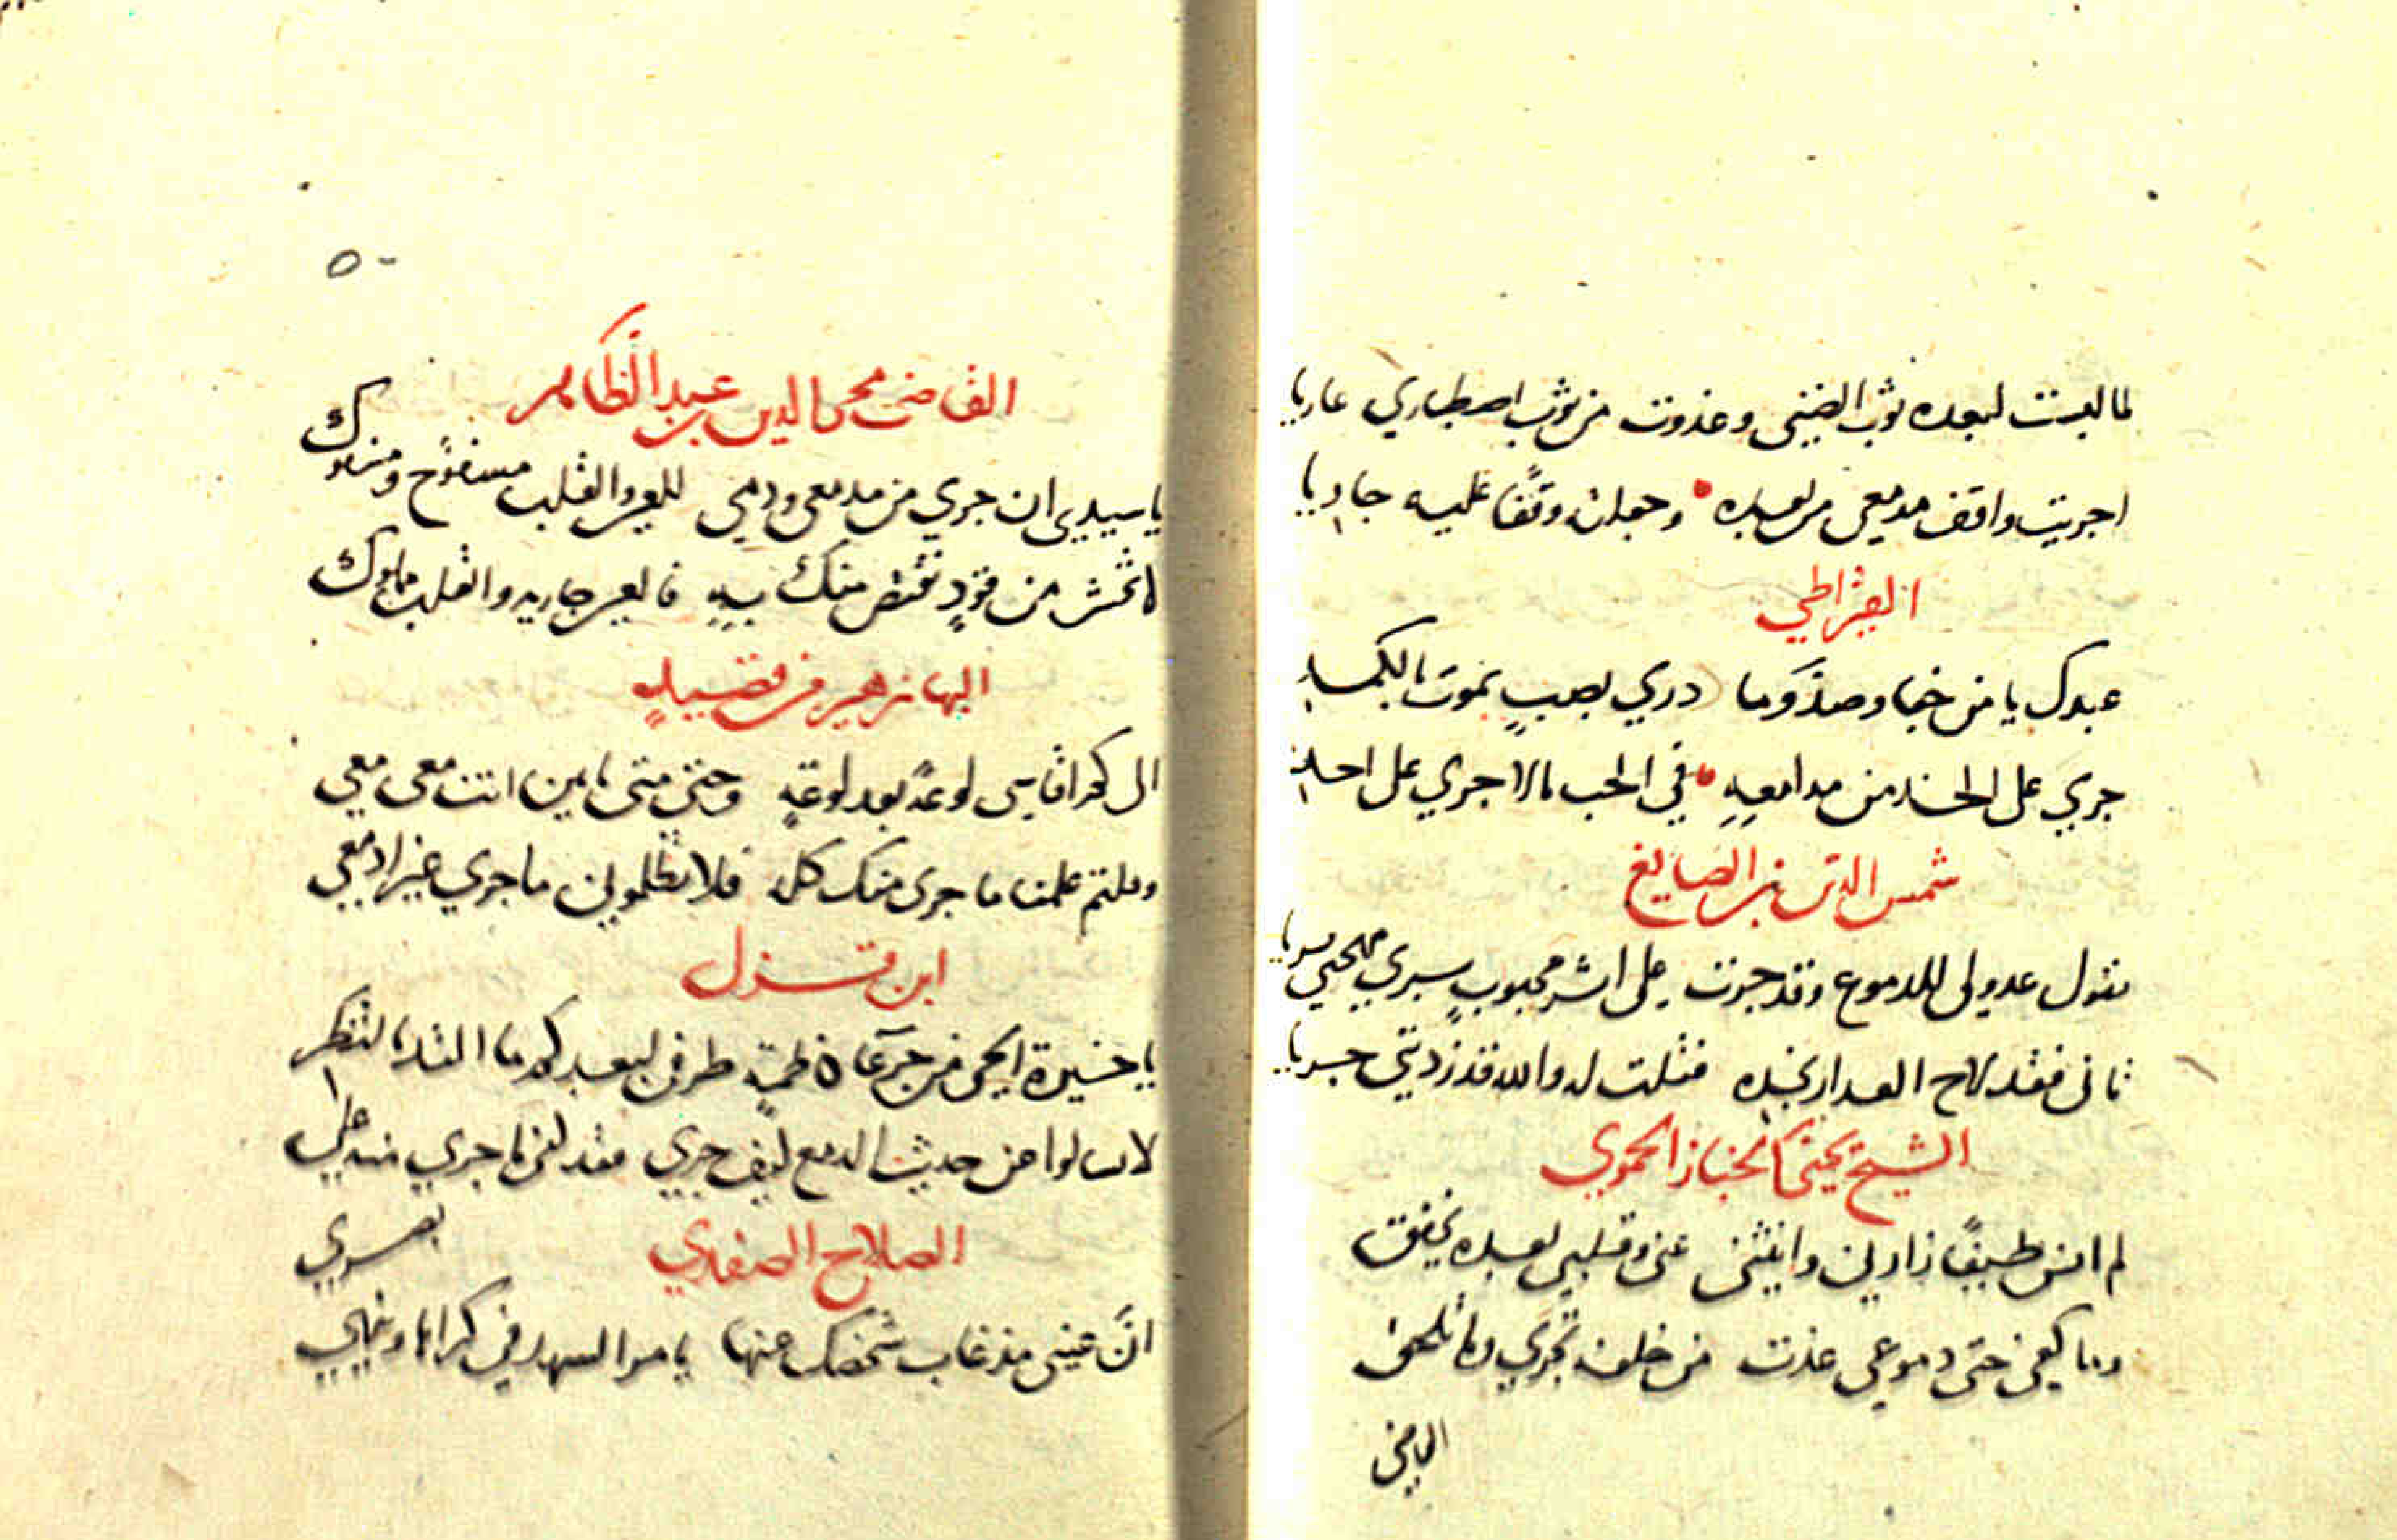 لما لبست لبعده ثوب الضنى وغدوت من ثوب اصطباري عاريا
اجريت واقف مدمعي من بعده وجعلت وقفا عليه جاريا
القيراطي
عبدك يا من جفا وصد وما درى بصب يموت بالكمد
جرى على الخد من مدامعه في الحب ما لا جرى على احد
شمس الدين بن الصايغ
يقول عدولي للدموع وقد جرت على اثر محبوب سبري
تانى فقد لاح العدار بخده فقلت له والله قد زدتني جريا
الشيخ يحيى الخباز الحموي
لم انس طيفا زارني وانثنى عني وقلبي بعده يخفق
وما كفى حتى دموعي غدت من خلفه تجري ولا تلحق
القاضي
٥٠
القاضي محيي الدين بن عبد الظاهر
يا سيدي ان جرى من مدمعي ودمي للعين والقلب مسفوح ومسفوك
لا تخش من قود تقتص منك به فالعين جاريه والقلب مملوك
البها زهير من قصيدة
الى كم اقاسي لوعة بعد لوعة وحتى متى يا بين انت معي معي
وقلتم علمنا ما جرى منك كله فلا تظلموني ما جرى غير ادمعي
ابن قزل
يا جيرة الحي من جرعا كاظمة طرفي لبعدكم ما التذ بالنظر
لا تسالوا عن حديث الدمع كيف جرى فقد كفى ما جرى منه على
بصري
الصلاح الصفدي
ان عيني مذ غاب شخصك عنها يامر السهد في كراها وينهى